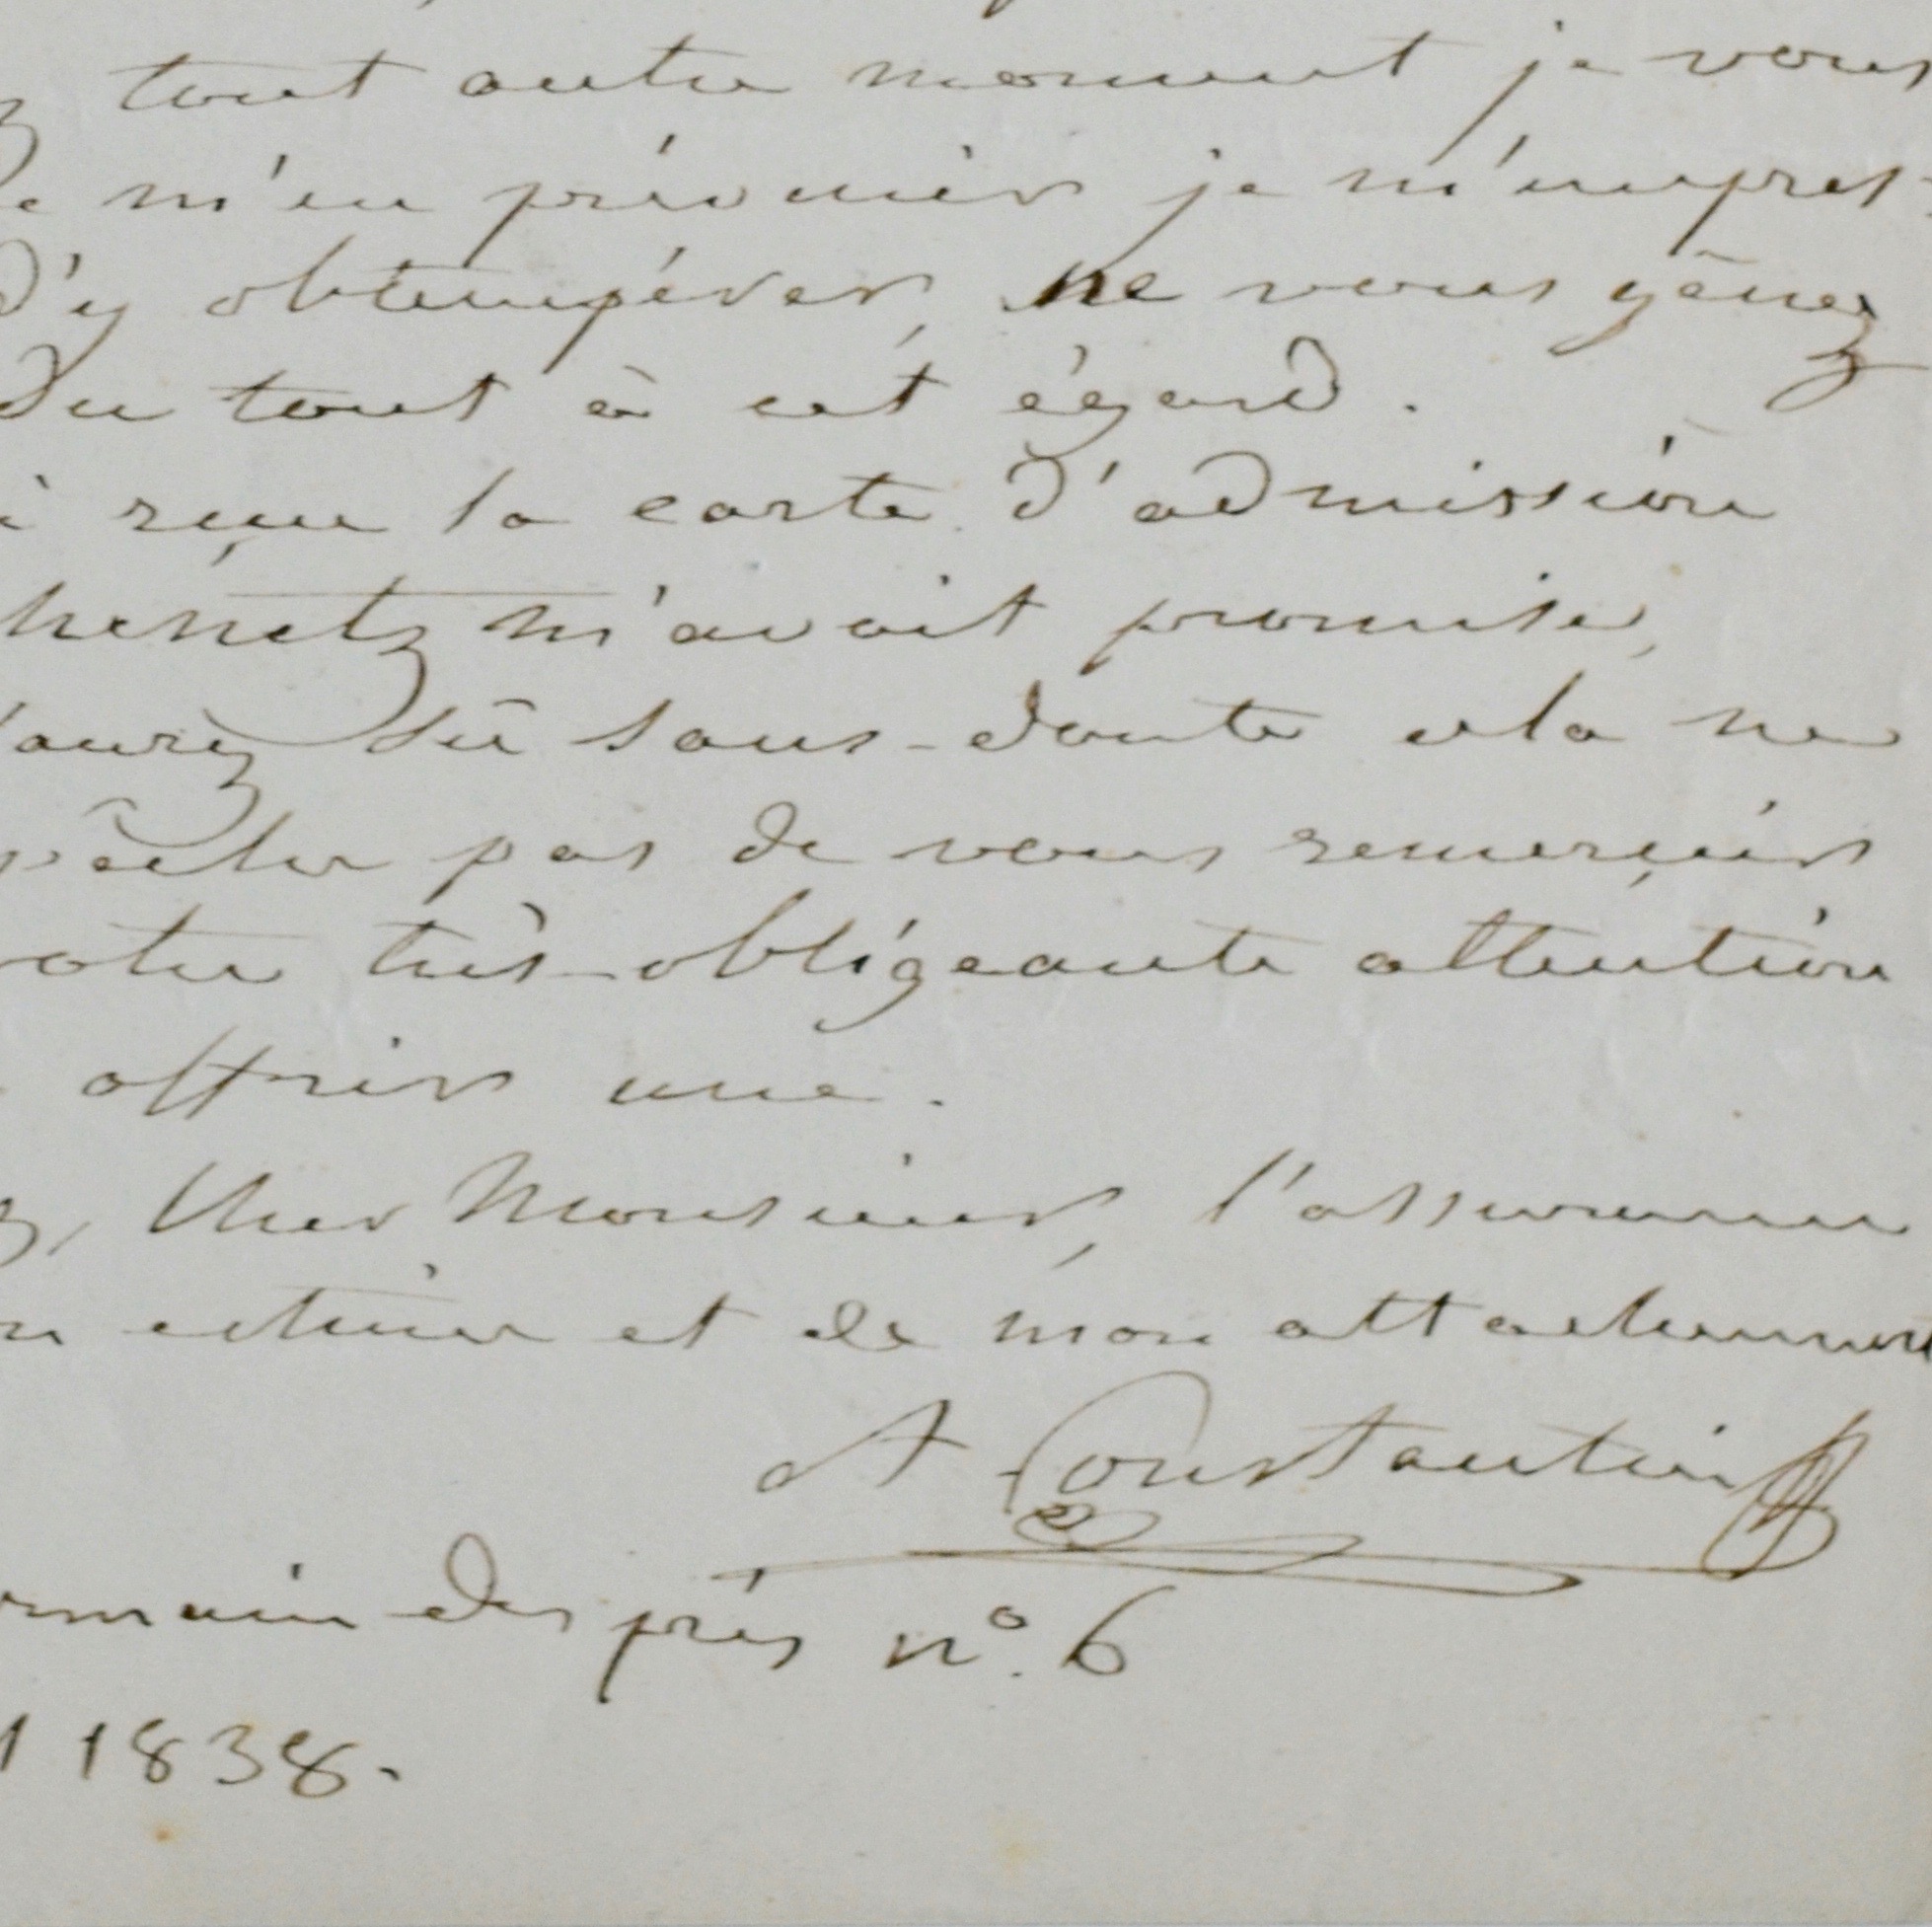 z tout autre moment je vous
e m'en prévenir je m'empres-
d'y obtempérer, ne vous gênez
du tout à cet égard.
i reçue la carte d'admission
henetz m'avait promise,
l'aurez dû sans-doute cela ne
pêcher pas de vous remerçier
votre très-obligeante attention
offrir une.
z, Cher Monsieur, l'assurance
n estime et de mon attachement
A Constantin
rmain des prés n°. 6
l 1838.